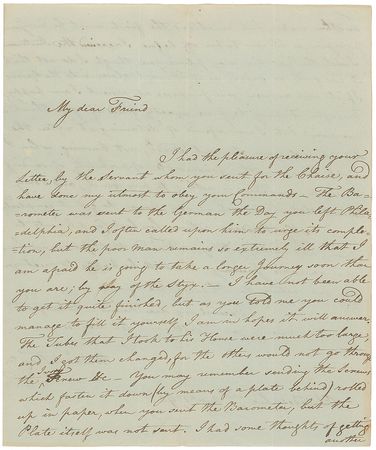 My dear Friend
I had the pleasure of receiving your
Letter, by the Servant whom you sent for the Chaise, and
have done my utmost to obey your Commands – The Ba-
=rometer was sent to the German the Day you left Phila
=delphia, and I often called upon him to urge its comple-
=tion, but the poor man remains so extremely ill that I
am afraid he is going to take a longer Journey soon than
you are; by way of the Styx. – I have not been able
to get it quite finished, but as you told me you could
manage to fill it yourself I am in hopes it will answer.
The Tubes that I took to his House were much too large,
and I got them changed, for the others would not go through
the Screw &c – You may remember sending the Screws
which fasten it down (by means of a plate behind) rolled
up in paper, when you sent the Barometer, but the
Plate itself was not sent. I had some thoughts of getting
another